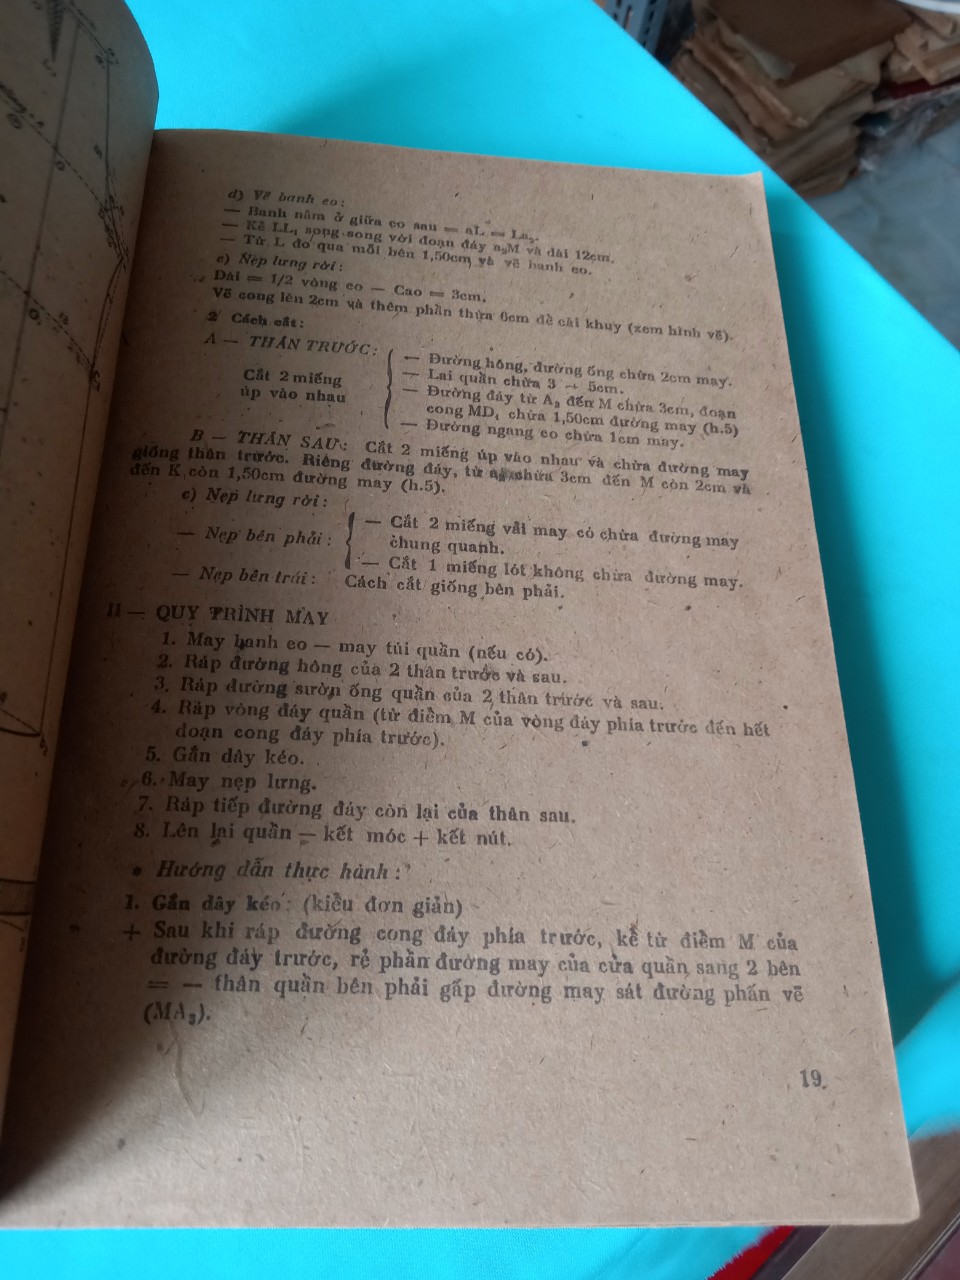 d) Vẽ banh eo:
— Banh nằm ở giữa eo sau = aL = La₂.
— Kẻ LL₁ song song với đoạn đáy a₃M và dài 12cm.
— Từ L đo qua mỗi bên 1,50cm và vẽ banh eo.
e) Nẹp lưng rời:
Dài = 1/2 vòng eo — Cao = 3cm.
Vẽ cong lên 2cm và thêm phần thừa 6cm để cài khuy (xem hình vẽ).
2 Cách cắt:
A — THÂN TRƯỚC:
Cắt 2 miếng
úp vào nhau
— Đường hông, đường ống chừa 2cm may.
— Lai quần chừa 3 → 5cm.
— Đường đáy từ A₃ đến M chừa 3cm, đoạn
cong MD₁ chừa 1,50cm đường may (h.5)
— Đường ngang eo chừa 1cm may.
B — THÂN SAU: Cắt 2 miếng úp vào nhau và chừa đường may
giống thân trước. Riêng đường đáy, từ chừa 3cm đến M còn 2cm và
đến K còn 1,50cm đường may (h.5).
c) Nẹp lưng rời:
— Nẹp bên phải:
— Cắt 2 miếng vải may có chừa đường may
chung quanh.
— Cắt 1 miếng lót không chừa đường may.
— Nẹp bên trái: Cách cắt giống bên phải.
II — QUY TRÌNH MAY
1. May banh eo — may túi quần (nếu có).
2. Ráp đường hông của 2 thân trước và sau.
3. Ráp đường sườn ống quần của 2 thân trước và sau.
4. Ráp vòng đáy quần (từ điểm M của vòng đáy phía trước đến hết
đoạn cong đáy phía trước).
5. Gắn dây kéo.
6. May nẹp lưng.
7. Ráp tiếp đường đáy còn lại của thân sau.
8. Lên lai quần — kết móc + kết nút.
• Hướng dẫn thực hành:
1. Gắn dây kéo: (kiểu đơn giản)
+ Sau khi ráp đường cong đáy phía trước, kể từ điểm M của
đường đáy trước, rẽ phần đường may của cửa quần sang 2 bên
= — thân quần bên phải gấp đường may sát đường phấn vẽ
(MA₃).
19.